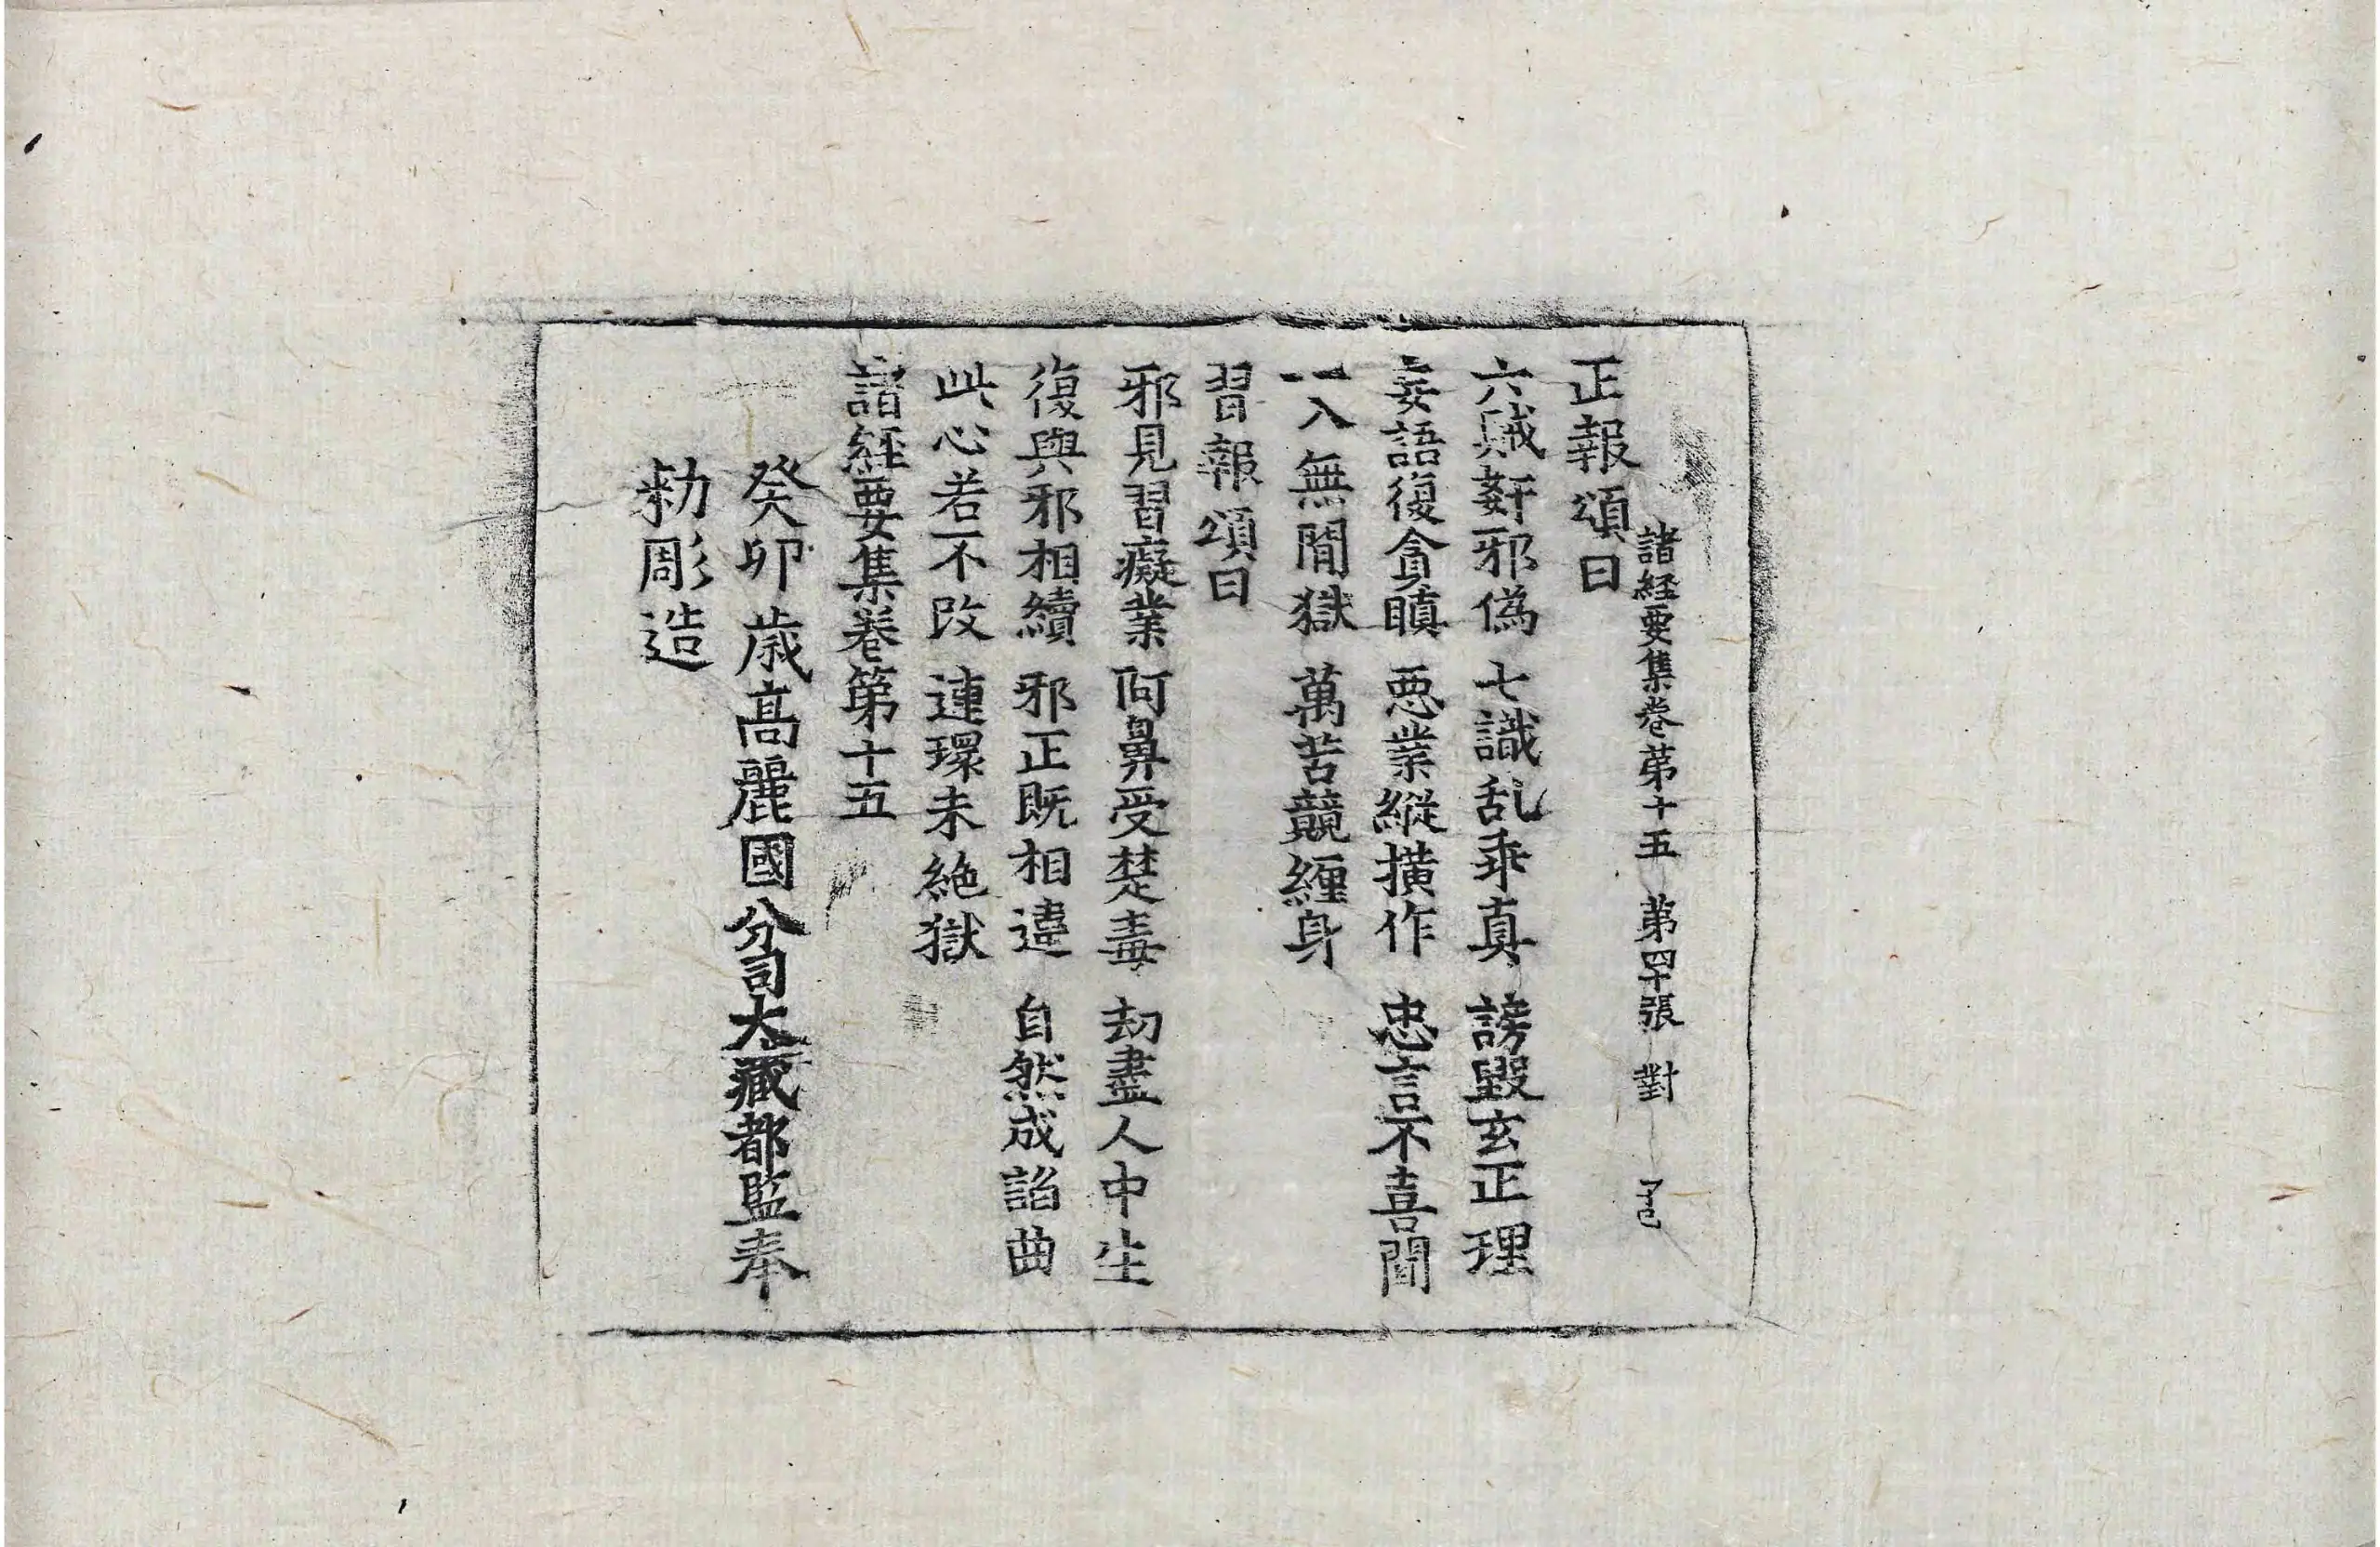 諸経要集卷第十五 第四十張 對 了己
正報頌曰
六賊姧邪僞 七識乱乖真 謗毀玄正理
妄語復貪瞋 惡業縱撗作 忠言不喜聞
一入無間獄 萬苦競纏身
習報頌曰
邪見習癡業 阿鼻受楚毒 劫盡人中生
復與邪相續 邪正既相違 自然成諂曲
此心若不改 連環未絶獄
諸経要集卷第十五
癸卯歳髙麗國分司大藏都監奉
勑彫造